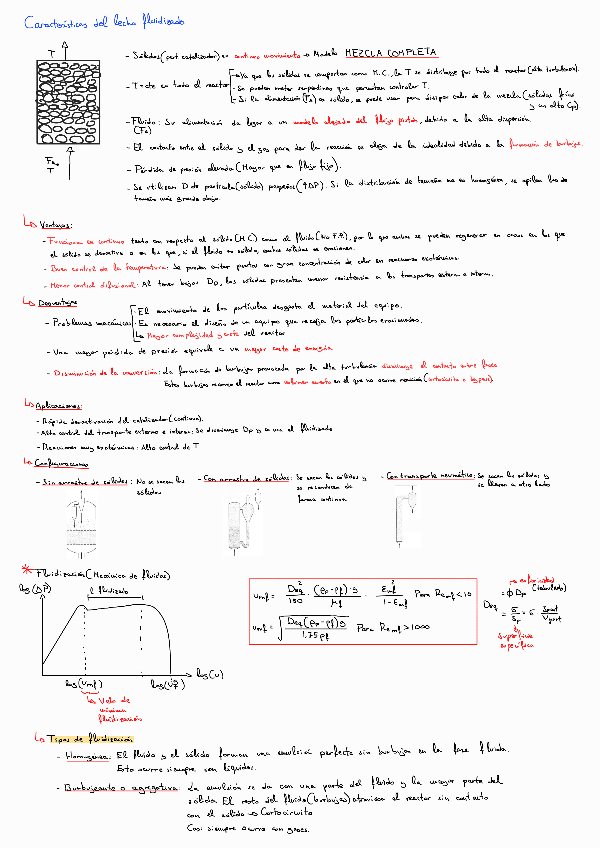 Características del lecho fluidizado
T
F_A0
T
- Sólidos (part catalizador) en continuo movimiento → Modelo MEZCLA COMPLETA
- T = cte en todo el reactor
- Ya que los sólidos se comportan como M.C., la T se distribuye por todo el reactor (alta turbulencia).
- Se pueden meter serpentines que permitan controlar T.
- Si la alimentación (F_A) es sólido, se puede usar para disipar calor de la mezcla (sólidos fríos
y un alto Cp).
- Fluido: Su alimentación da lugar a un modelo alejado del flujo pistón, debido a la alta dispersión.
(F_A)
- El contacto entre el sólido y el gas para dar la reacción se aleja de la idealidad debido a la formación de burbujas.
- Pérdida de presión elevada (Mayor que en flujo fijo).
- Se utilizan D de partícula (sólido) pequeños (↑ΔP). Si la distribución de tamaño no es homogénea, se apilan los de
tamaño más grande abajo.
↳ Ventajas:
- Funciona en continuo tanto con respecto al sólido (M.C.) como al fluido (No F.P.), por lo que ambos se pueden regenerar en casos en los que
el sólido se desactiva o en los que, si el fluido es sólido, ambos sólidos se erosionen.
- Buen control de la temperatura: Se pueden evitar puntos con gran concentración de calor en reacciones exotérmicas.
- Menor control difusional: Al tener bajos Dp, los sólidos presentan menor resistencia a los transportes externo e interno.
↳ Desventajas
- Problemas mecánicos
- El movimiento de las partículas desgasta el material del equipo.
- Es necesario el diseño de un equipo que recoja las partículas erosionadas.
↳ Mayor complejidad y coste del reactor
- Una mayor pérdida de presión equivale a un mayor coste de energía
- Disminución de la conversión: La formación de burbujas provocada por la alta turbulencia disminuye el contacto entre fases
Estas burbujas recorren el reactor como volumen muerto en el que no ocurre reacción (cortocircuito o bypass).
↳ Aplicaciones:
- Rápida desactivación del catalizador (continuo).
- Alto control del transporte externo e interno: Se disminuye Dp y se usa el fluidizado
- Reacciones muy exotérmicas: Alto control de T
↳ Configuraciones
- Sin arrastre de sólidos: No se sacan los
sólidos
- Con arrastre de sólidos: Se sacan los sólidos y
se reconducen de
forma continua
- Con transporte neumático: Se sacan los sólidos y
se llevan a otro lado
* Fluidización (Mecánica de fluidos)
log (ΔP)
l. fluidizado
log (u_mf)
log (u_f)
log (u)
↳ Velo de
mínima
fluidización
u_mf = D_eq²/150 · (ρ_p - ρ_f)·g/μ_f · ε_mf³/(1-ε_mf) Para Re_mf < 10
u_mf = √(D_eq (ρ_p - ρ_f) g / 1.75 ρ_f) Para Re_mf > 1000
→ esfericidad
D_eq = φ Dp (tabulado)
= 6/S_p → 6 S_part/V_part
superficie
específica
↳ Tipos de fluidización
- Homogénea: El fluido y el sólido forman una emulsión perfecta sin burbujas en la fase fluida.
Esto ocurre siempre con líquidos.
- Burbujeante o agregativa: La emulsión se da con una parte del fluido y la mayor parte del
sólido. El resto del fluido (burbujas) atraviesa el reactor sin contacto
con el sólido → Cortocircuito
Casi siempre ocurre con gases.